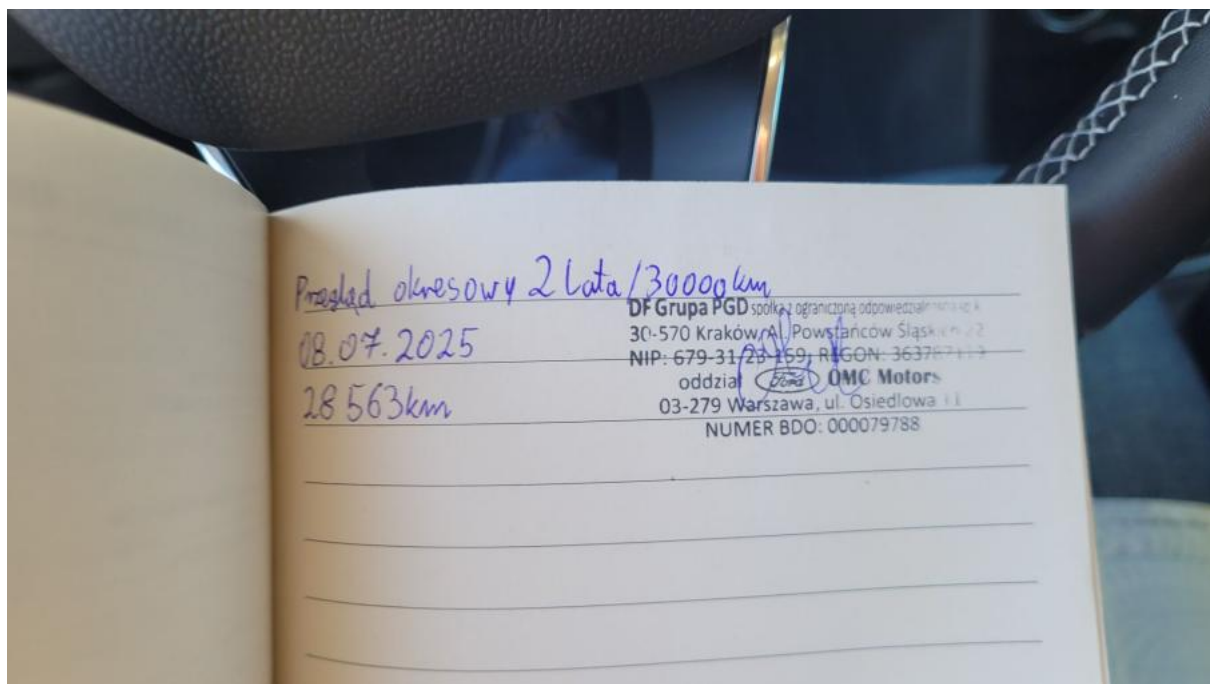 Przegląd okresowy 2 lata/30000km
08.07.2025
28 563km
DF Grupa PGD spółka z ograniczoną
30-570 Kraków, Al. Powstańców
NIP: 679-31 REGON:
oddział Ford OMC Motors
03-279 Warszawa, ul. Osiedlowa
NUMER BDO: 000079788